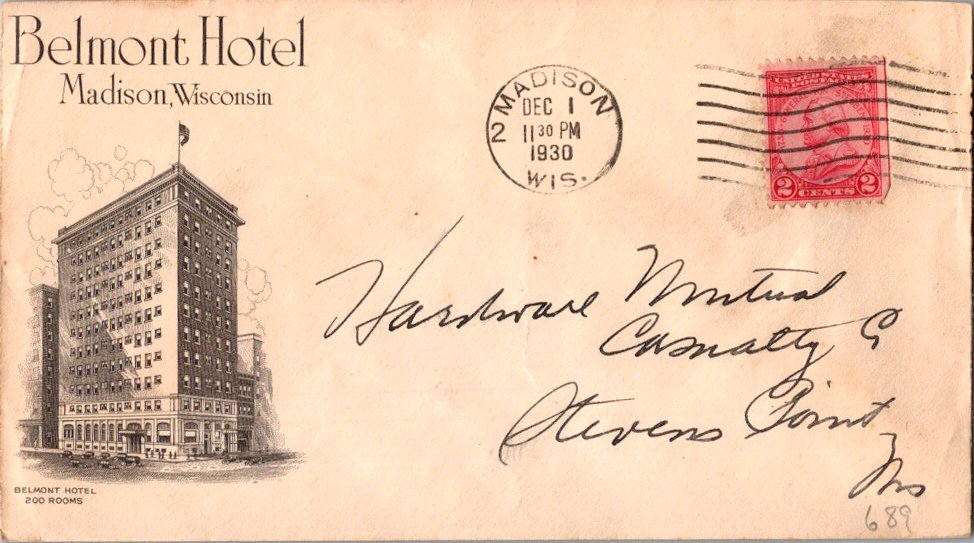 Belmont Hotel
Madison, Wisconsin
MADISON
2
DEC 1
11 30 PM
1930
WIS.
UNITED STATES
POSTAGE
2 CENTS 2
Hardware Mutual
Casualty Co
Stevens Point,
Wis
689
BELMONT HOTEL
200 ROOMS